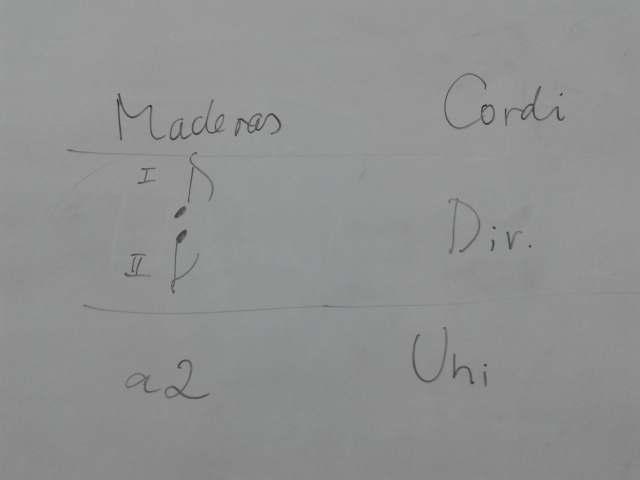 Maderas Cordi
I
II Div.
a2 Uni